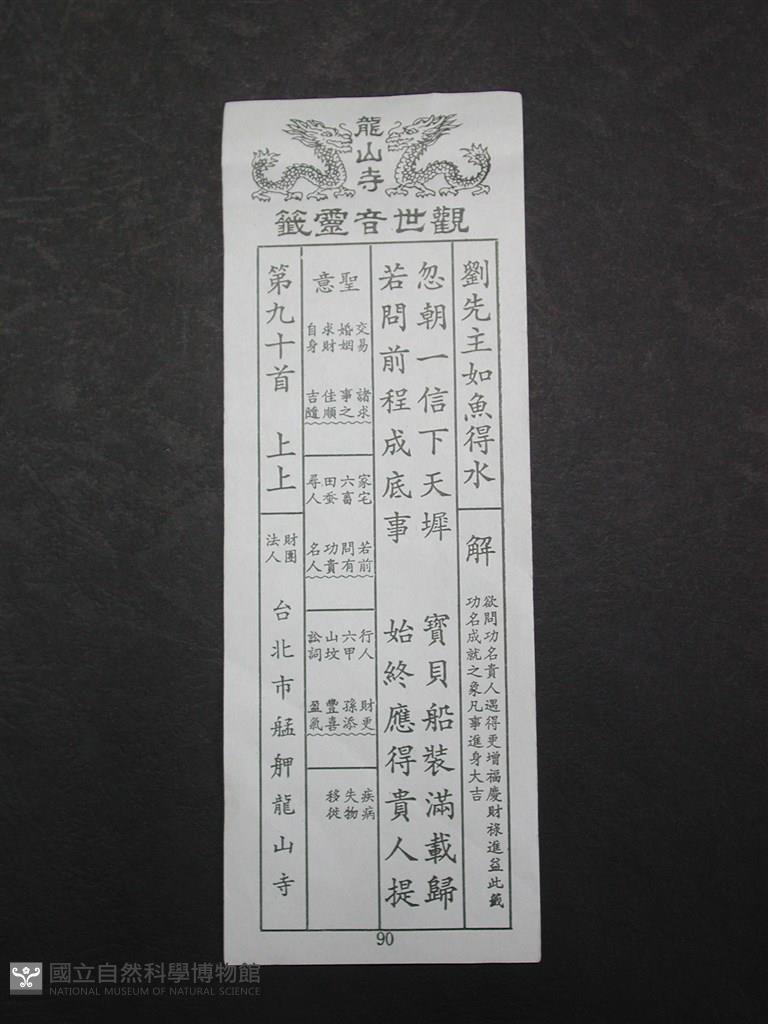 龍山寺
觀世音靈籤
劉先主如魚得水
解
欲問功名貴人遇得更增福慶財祿進益此籤
功名成就之象凡事進身大吉
忽朝一信下天墀 寶貝船裝滿載歸
若問前程成底事 始終應得貴人提
聖意
交易 婚姻 求財 自身
諸事佳吉
求之順隨
家宅 六畜 田蚕 尋人
若問功名
前有貴人
行人 六甲 山坟 訟詞
財孫豐盈
更添喜氣
疾病 失物 移徙
第九十首 上上
財團法人
台北市艋舺龍山寺
90
國立自然科學博物館
NATIONAL MUSEUM OF NATURAL SCIENCE